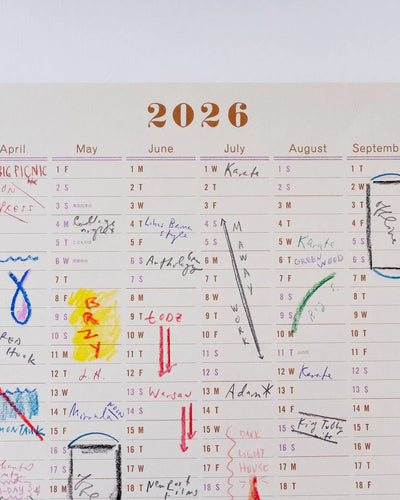 2026
April
May
June
July
August
Septemb
BIG PICNIC
1 F
2 S
3 S
4 M College
5 T
6 W
7 T
8 F
9 S
10 S
11 M
12 T L.H.
13 W
14 T Miranda
15 F
16 S
17 S
18 M
BRZY
1 M
2 T
3 W
4 T
5 F style
6 S Anthology
7 S
8 M
9 T ŁODZ
10 W
11 T
12 F
13 S Warsaw
14 S
15 M
16 T
17 W
18 T Newport Films
1 W Karate
2 T
3 F
4 S
5 S
6 M
7 T
8 W
9 T
10 F
11 S
12 S
13 M Adam
14 T
15 W
16 T DARK
17 F LIGHT
18 S HOUSE
MAWAY WORK
1 S
2 S
3 M
4 T
5 W Karate
6 T GREENWOOD
7 F
8 S
9 S
10 M
11 T
12 W Karate
13 T
14 F
15 S King Tubby
16 S
17 M
18 T
1 T
2 W
3 T
4 F
5 S
6 S
7 M
8 T
9 W
10 T
11 F
12 S
13 S
14 M
15 T
16 W
17 T
18 F
offline
MONTAUK